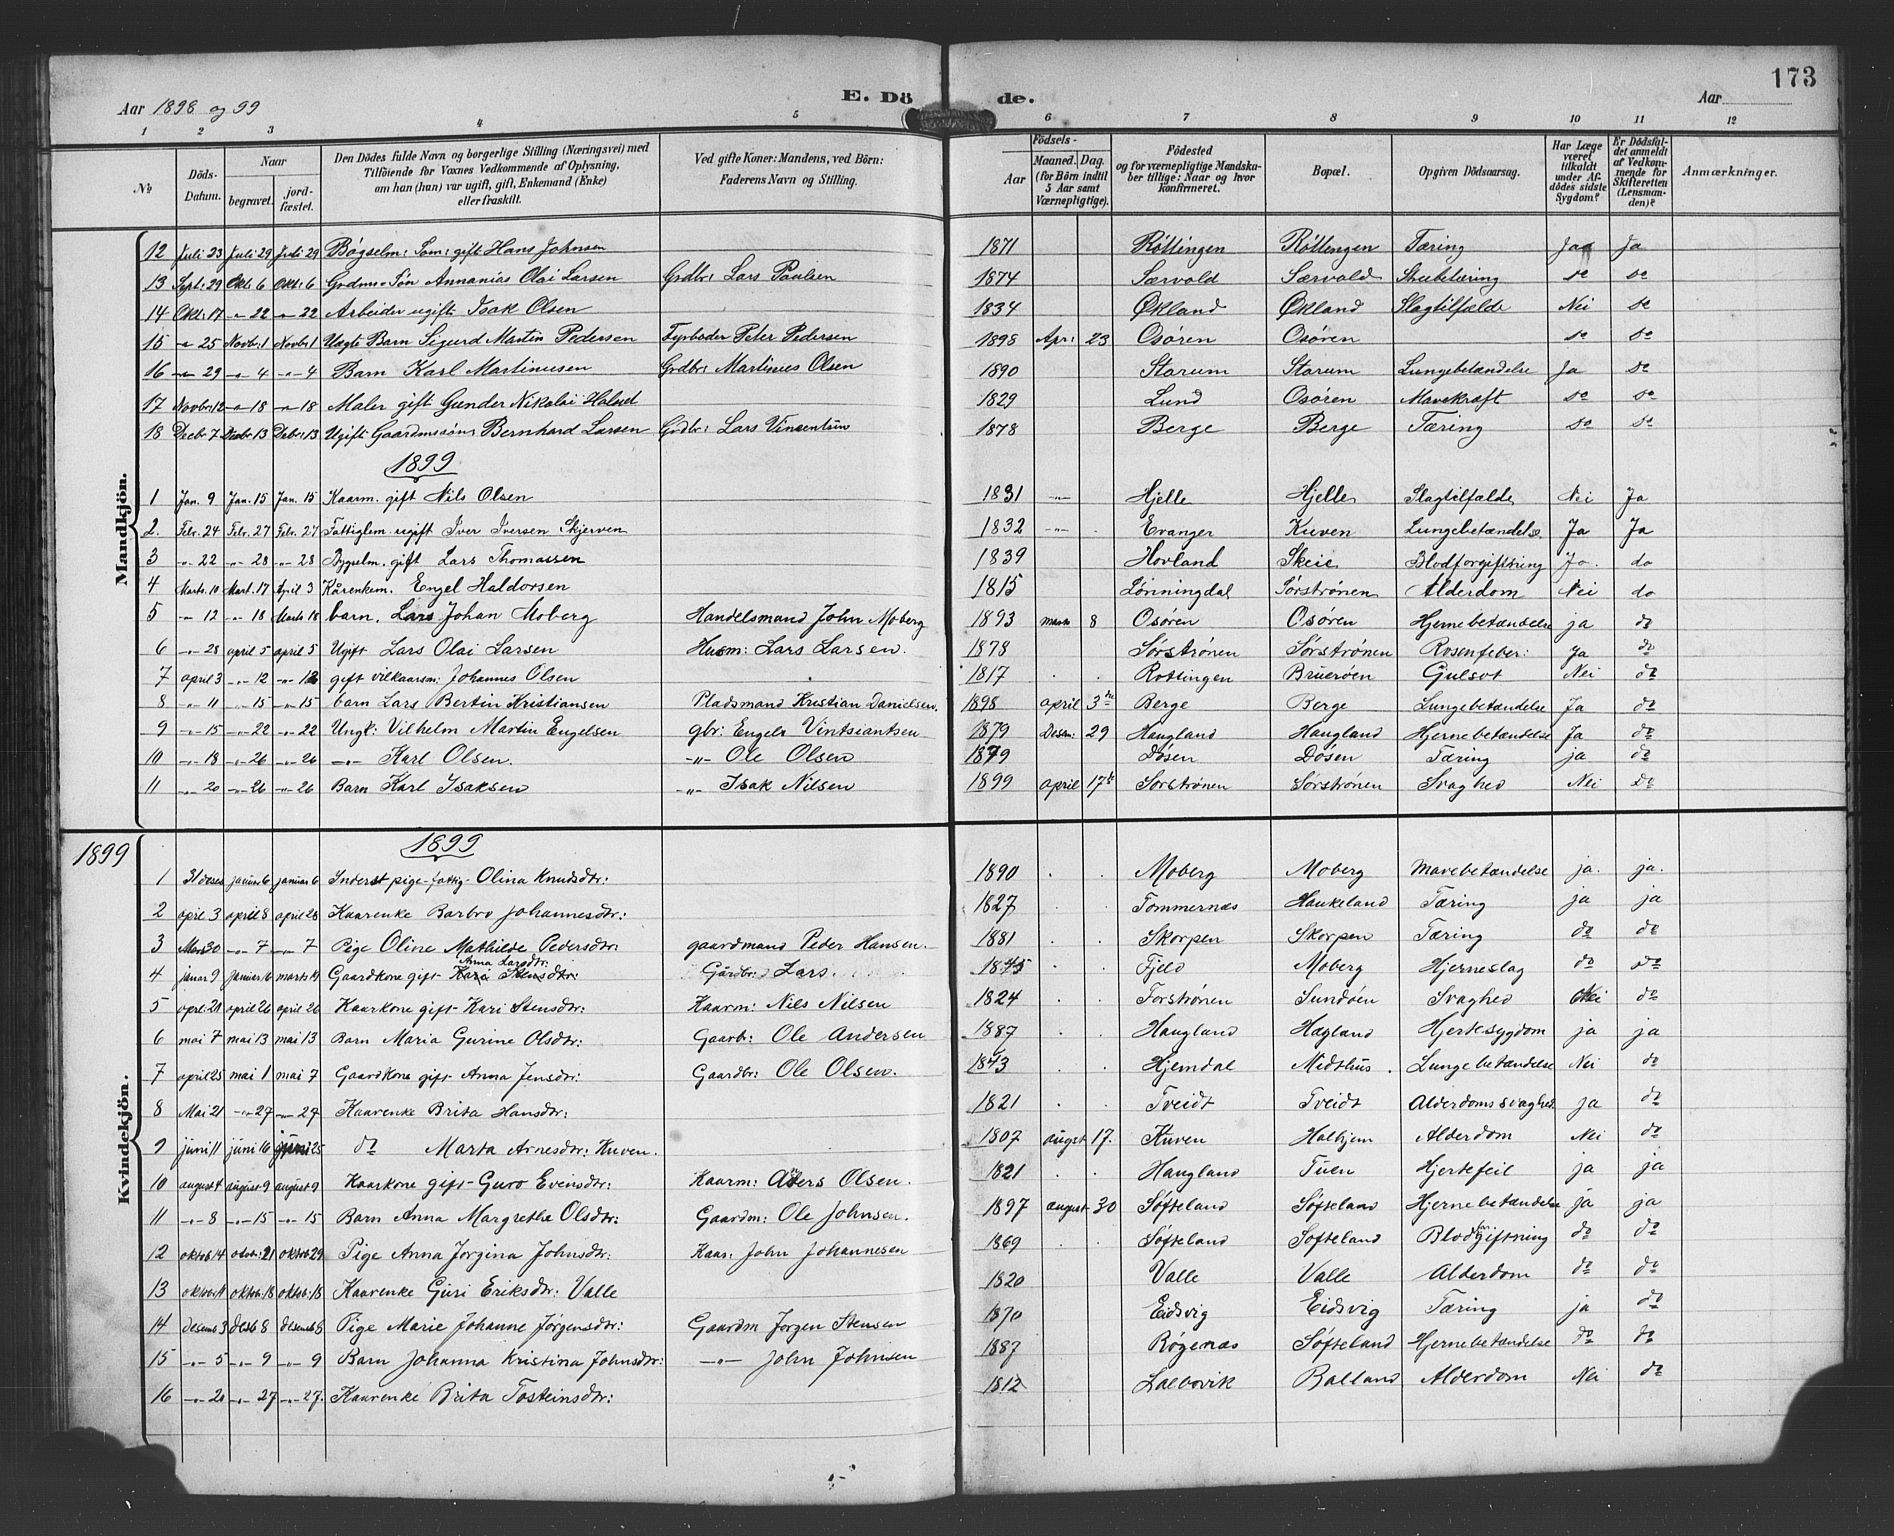 173
Aar 1898 og 99
E. Dö de.
Aar
1 2 3 4 5 6 7 8 9 10 11 12
No
Döds-Datum.
Naar
begravet. jord-fæstet.
Den Dödes fulde Navn og borgerlige Stilling (Næringsvei) med
Tilföiende for Voxnes Vedkommende af Oplysning,
om han (hun) var ugift, gift, Enkemand (Enke)
eller fraskilt.
Ved gifte Koner: Mandens, ved Börn:
Faderens Navn og Stilling.
Födsels-
Aar
Maaned. (for Börn indtil 5 Aar samt Værnepligtige).
Dag.
Födested
og for værnepligtige Mandska-
ber tillige: Naar og hvor
konfirmeret.
Bopæl.
Opgiven Dödsaarsag.
Har Læge været tilkaldt under Af-dödes sidste Sygdom?
Er Dödsfal-det anmeldt af Vedkom-mende for Skifteretten (Lensman-den)?
Anmærkninger.
Mandkjön.
12 Juli 23 Juli 29 Juli 29 Bøgselm: Søm: gift Hans Johnsen 1871 Røttingen Røttengen Tæring Ja Ja
13 Sept: 29 Okt: 6 Okt: 6 Grdms Søn Annanias Olai Larsen Grdbr: Lars Paulsen 1874 Særvold Særvold Strubetæring do do
14 Okt: 17 -"- 22 -"- 22 Arbeider ugift Isak Olsen 1834 Økland Økland Slagtilfælde Nei do
15 -"- 25 Novbr: 1 Novbr: 1 Uægte Barn Sigurd Martin Pedersen Fyrbøder Peter Pedersen 1898 Apr: 23 Osøren Osøren do do
16 -"- 29 -"- 4 -"- 4 Barn Karl Martinusen Grdbr: Martinus Olsen 1890 Starum Starum Lungebetændelse Ja do
17 Novbr: 12 -"- 18 -"- 18 Maler gift Gunder Nikolai Halsed 1829 Lund Osøren Mavekræft do do
18 Decbr 7 Decbr 13 Debr: 13 Ugift Gaardmssøn Bernhard Larsen Grdbr: Lars Vinsentsen 1878 Berge Berge Tæring do do
1899
1 Jan. 9 Jan. 15 Jan. 15 Kaarm. gift Nils Olsen 1831 -"- Hjelle Hjelle Slagtilfælde Nei Ja
2. Febr. 24 Febr. 27 Febr. 27 Fattiglem ugift Iver Iversen Skjerven 1832 -"- Evanger Kuven Lungebetændelse. Ja Ja
3 -"- 22 -"- 28 -"- 28 Bygselm. gift Lars Thomassen 1839 Hovland Skeie Blodforgiftning Ja. do
4 Marts. 10 Mart. 17 April 3 Kårenkem. Engel Haldorsen 1815 Lønningdal Sørstrønen Alderdom Nei do
5 -"- 12 -"- 18 Marts 18 barn. Lars Johan Moberg Handelsmand John Moberg 1893 marts 8 Osøren Osøren Hjernebetændelse ja do
6 -"- 28 april 5 april 5 Ugift Lars Olai Larsen Husm: Lars Larsen. 1878 Sørstrønen Sørstrønen Rosenfeber: Ja do
7 april 3 -"- 12 -"- 12 gift vilkaarsm: Johannes Olsen 1817 Rottingen Bruerøen Gulsot Nei do
8 -"- 11 -"- 15 -"- 15 barn Lars Bertin Kristiansen Pladsmand Kristian Danielsen. 1898 april 3 Berge Berge Lungebetændelse Ja do
9 -"- 15 -"- 22 -"- 22 Ungk: Vilhelm Martin Engelsen gbr: Engels Vintsiantsen 1879 Desem: 29 Haugland Haugland Hjernebetændelse Ja do
10 -"- 18 -"- 26 -"- 26 -"- Karl Olsen. -"- Ole Olsen 1879 Døsen Døsen Tæring ja do
11 -"- 20 -"- 26 -"- 26 Barn Karl Isaksen -"- Isak Nilsen 1899 april 17 Sørstrønen Sørstrønen Svaghed Nei do
1899
1899
Kvindekjön.
1 31 deses januar 6 januar 6 Inderst pige-fattig- Olina Knudsdtr: 1890 Moberg Moberg Mavebetændelse ja. ja.
2 april 3 april 8 april 28 Kaarenke Barbro Johannesdtr: 1827 Tommernæs Haukeland Tæring ja ja
3 Mars 30 -"- 7 -"- 7 Pige Oline Mathilde Pedersdtr: gaardmand Peder Hansen. 1881 Skorpen Skorpen Tæring do do
4 januar 9 Januar 16 marts 19 Gaardkone gift Kari Stensdtr: Anna Larsdtr: Gårdbr: Lars 1845 Fjeld Moberg Hjerneslag do do
5 april 21 april 26 april 26 Kaarkone gift Kari Stensdtr: Kaarm: Nils Nilsen 1824 Forstrønen Sundøen Svaghed Nei do
6 mai 7 mai 13 mai 13 Barn Maria Gurine Olsdtr: Gaarb: Ole Andersen 1887 Haugland Hagland Hjertesygdom ja ja
7 april 25 mai 1 mai 7 Gaardkone gift Anna Jensdtr: Gaardbr: Ole Olsen. 1843 Hjemdal Midthus. Lungebetændelse Nei do
8 Mai 21 -"- 27 -"- 27 Kaarenke Brita Hansdtr: 1821 Tveidt Tveidt Alderdomssvaghed ja do
9 juni 11 juni 16 juni 25 do Marta Arnesdtr: Kuven. 1807 augst 17. Kuven Halhjem Alderdom Nei do
10 august 4 august 9 august 9 Kaarkone gift Guro Evensdtr: Kaarm: Olsen. 1821 Haugland Tuen Hjertefeil ja ja
11 -"- 8 -"- 15 -"- 15 Barn Anna Margretha Olsdtr: Gaardm: Ole Johnsen. 1897 august 30 Søfteland Søfteland Hjernebetændelse ja ja
12 oktob 14 oktob: 21 oktob 29 Pige Anna Jorgina Johnsdtr: Kaar: John Johannesen 1869 Søfteland Søfteland Blodforgiftning do do
13 oktob 11 oktob: 18 oktob: 18 Kaarenke Guri Eriksdtr: Valle 1820 Valle Valle Alderdom do do
14 desemb 3 desb 8 desemb 8 Pige Marie Johanne Jørgensdtr: Gaardm Jørgen Stensen 1870 Eidsvig Eidsvig Tæring ja do
15 -"- 5 -"- 9 -"- 9 Barn Johanna Kristina Johnsdtr: -"- John Johnsen 1887 Røgenæs Søfteland Hjernebetændelse do do
16 -"- 20 -"- 27 -"- 27. Kaarenke Brita Tosteinsdtr: 1812 Lalvovik Balland Alderdom Nei do